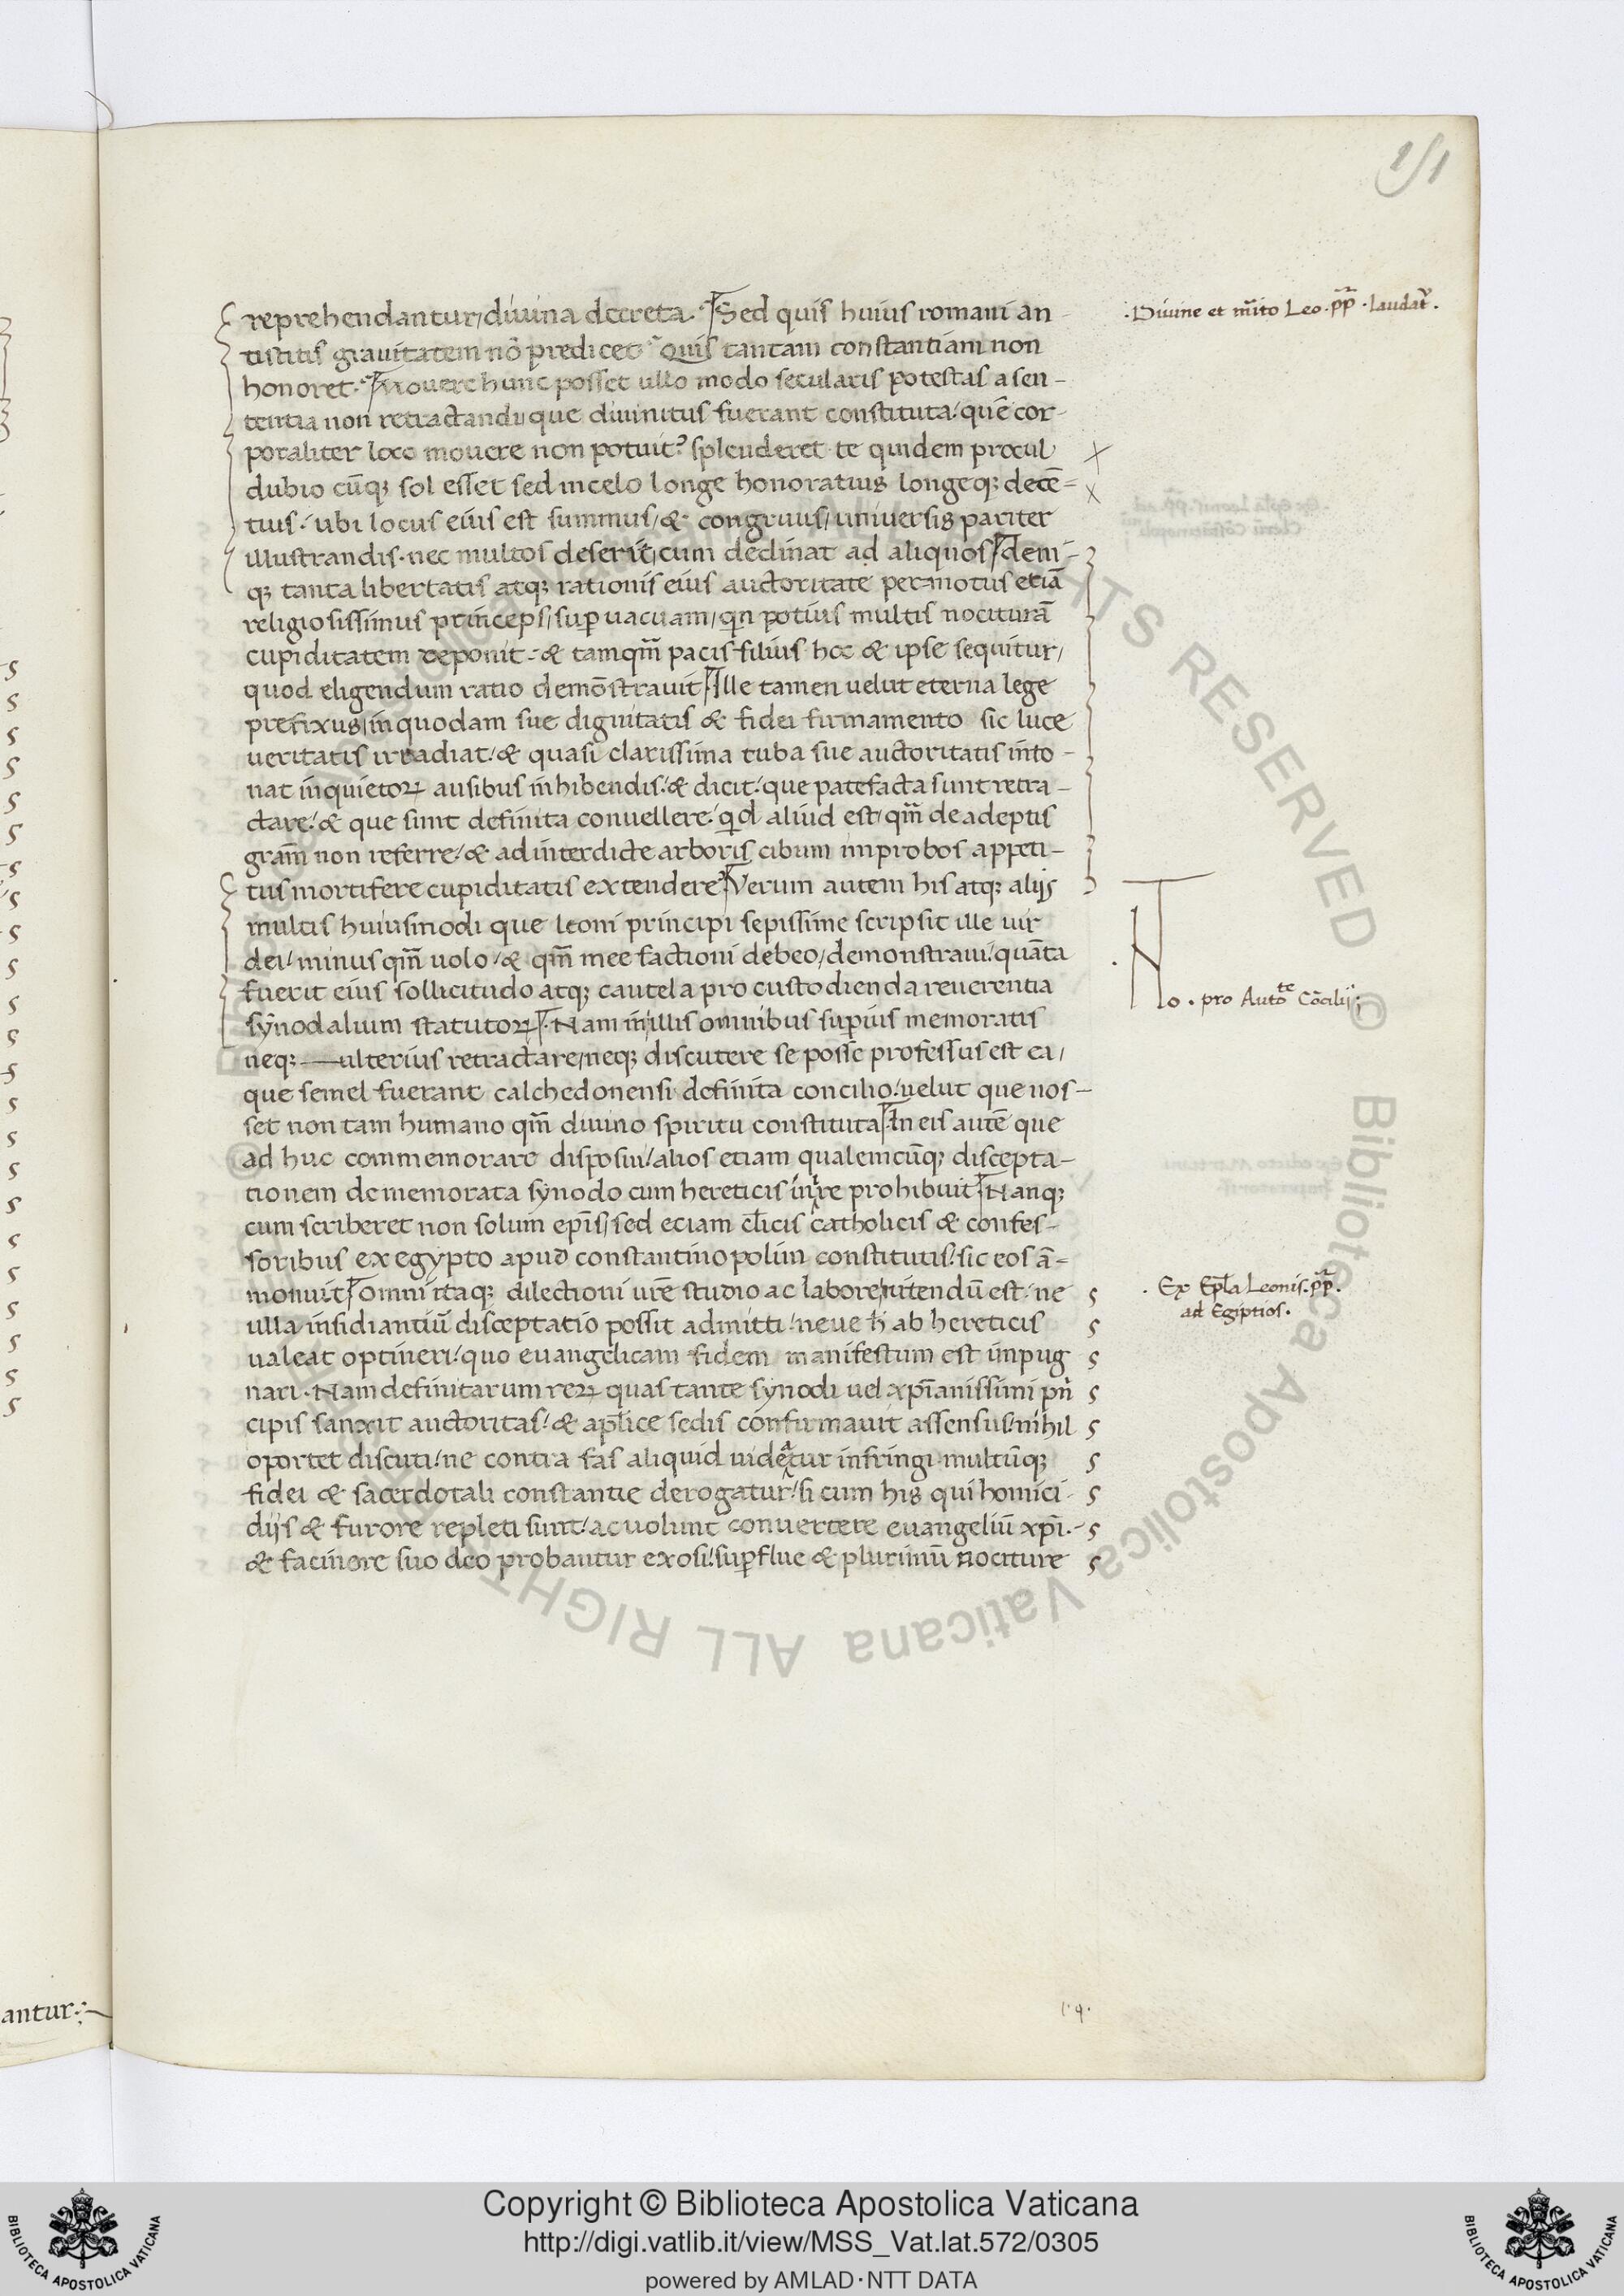 151
reprehendantur/ diuina decreta. Sed quis huius romani an-
tistitis grauitatem nō predicet? Quis tantam constantiam non
honoret. Mouere hunc posset ullo modo secularis potestas a sen-
tentia non retractandi que diuinitus fuerant constituta/ quē cor-
poraliter loco mouere non potuit? splenderet te quidem procul
dubio cūq; sol esset sed in celo longe honoratius longeq; decē=
tius. ubi locus eius est summus/ & congruus/ uniuersis pariter
illustrandis. nec multos deserit/ cum declinat ad aliquos/ deni-
q; tanta libertatis atq; rationis eius auctoritate permotus etiā
religiosissimus princeps/ suꝑuacuam/ qn potius multis nociturā
cupiditatem deponit. & tamqm̄ pacis filius hoc & ipse sequitur/
quod eligendum ratio demōstrauit. Ille tamen uelut eterna lege
prefixus/ in quodam sue dignitatis & fidei firmamento sic luce
ueritatis irradiat/ & quasi clarissima tuba sue auctoritatis into-
nat inquietoꝝ ausibus inhibendis/ & dicit/ que patefacta sunt retra-
ctare/ & que sunt definita conuellere/ qd aliud est/ qm̄ de adeptis
gram̄ non referre/ & ad interdicte arboris cibum improbos appeti-
tus mortifere cupiditatis extendere? Verum autem his atq; alijs
multis huiusmodi que leoni principi sepissime scripsit ille uir
dei/ minus qm̄ uolo/ & qm̄ mee factioni debeo/ demonstraui/ quāta
fuerit eius sollicitudo atq; cautela pro custodienda reuerentia
synodalium statutoꝝ. Nam in illis omnibus suꝑius memoratis
neq;—ulterius retractare/ neq; discutere se posse professus est ea/
que semel fuerant calchedonensi definita concilio/ uelut que nos-
set non tam humano qm̄ diuino spiritu constituta. In eis autē que
ad huc commemorare disposui/ alios etiam qualemcūq; discepta-
tionem de memorata synodo cum hereticis inire prohibuit. Nanq;
cum scriberet non solum ep̄is/ sed eciam cl̄icis catholicis & confes-
soribus ex egypto apud constantinopolim constitutis/ sic eos ā=
monuit. Omni itaq; dilectioni ur̄e studio ac labore nitendū est/ ne
ulla insidiantiū disceptatio possit admitti/ neue h ab hereticis
ualeat optineri/ quo euangelicam fidem manifestum est inpug
nari. Nam definitarum reꝝ quas tante synodi uel xp̄ianissimi pn
cipis sanxit auctoritas/ & ap̄lice sedis confirmauit assensus/ nihil
oportet discuti/ ne contra fas aliquid uideatur infringi. multūq;
fidei & sacerdotali constantie derogatur/ si cum his qui homici-
dijs & furore repleti sunt/ ac uolunt conuertere euangeliū xp̄i.
& facinore suo deo probantur exosi/ suꝑflue & plurimū nociture
.Diuine et m̄ito Leo .pp̄. laudat̄.
No. pro Autote Cōcilij;
. Ex Ep̄la Leonis .pp̄.
ad Egiptios.
antur:
Copyright © Biblioteca Apostolica Vaticana
http://digi.vatlib.it/view/MSS_Vat.lat.572/0305
powered by AMLAD·NTT DATA
BIBLIOTECA APOSTOLICA VATICANA
BIBLIOTECA APOSTOLICA VATICANA